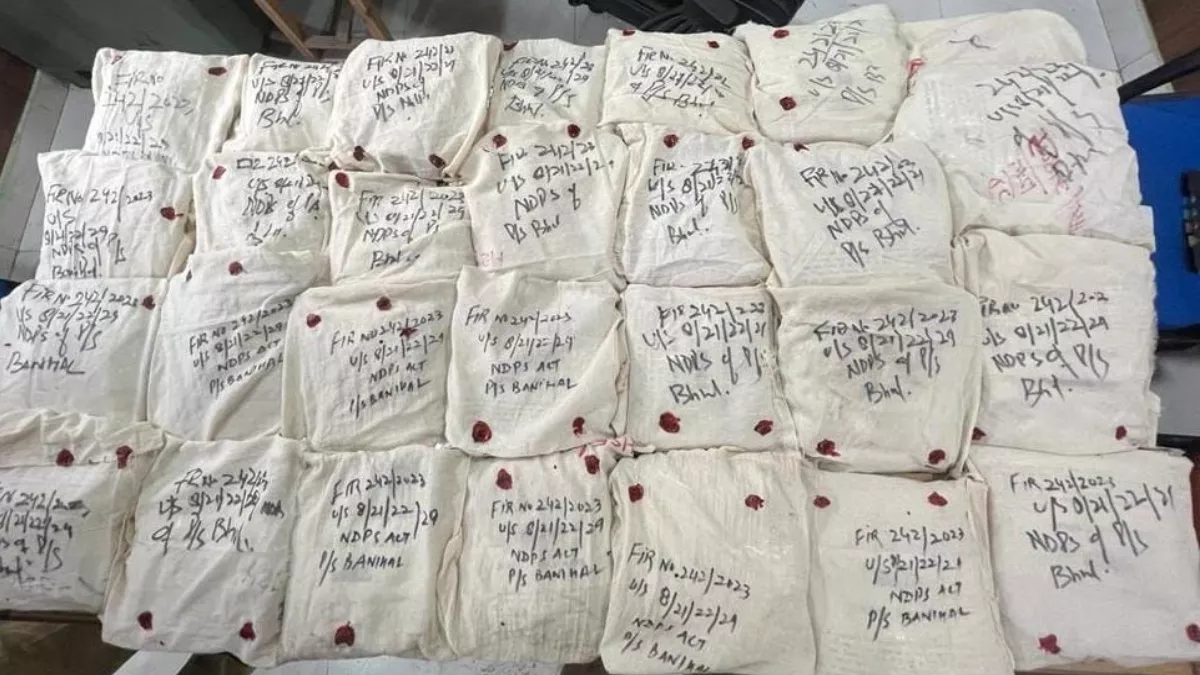 FIR No
242/2023
U/S
8/21/22/29
FIR No 242/23
U/S 8/21/22/29
NDPS of P/S
Bhl.
FIR No 242/23
U/S 8/21/22/29
NDPS of
P/S
FIR No 242/23
U/S 8/21/22/29
NDPS of P/S
Bhl.
FIR No 242/23
U/S 8/21/22/29
NDPS
of P/S Bhl.
242/23
U/S 8/21/22/29
P/S
FIR No 242/2023
U/S
8/21/22/29
NDPS of P/S
Banihal
FIR 242/
U/S 8/21/22
NDPS of P/S
FIR 242/2023
U/S 8/21/22/29
NDPS of P/S
Banihal
FIR 242/23
U/S 8/21/22/29
NDPS of
P/S Bhl
FIR 242/23
U/S 8/21/22/29
NDPS of P/S
Bhl.
FIR No 242/23
U/S 8/21/22/29
NDPS of
P/S Bhl.
FIR No 242/2023
U/S 8/21/22/29
NDPS of P/S
BANIHAL
FIR No 242/2023
U/S 8/21/22/29
NDPS ACT
P/S BANIHAL
FIR No 242/2023
U/S 8/21/22/29
NDPS ACT
P/S BANIHAL
FIR No 242/2023
U/S 8/21/22/29
NDPS ACT
P/S BANIHAL
FIR 242/2023
U/S 8/21/22/29
NDPS of P/S
Bhl.
FIR No 242/2023
U/S 8/21/22/29
NDPS of P/S
Bhl.
FIR No 242/202
U/S 8/21/22/29
NDPS of P/S
Bhl.
242/202
8/21/22/29
of P/S
FIR No 242/23
U/S 8/21/22/29
of P/S Bhl.
FIR 242/2023
U/S 8/21/22/29
NDPS ACT
P/S BANIHAL
FIR No 242/2023
U/S 8/21/22/29
NDPS ACT
P/S BANIHAL
FIR No. 242/2023
U/S 8/21/22/29
NDPS ACT
P/S BANIHAL
FIR 242/2023
U/S 8/21/22/29
NDPS ACT
P/S BANIHAL
FIR 242/2023
U/S 8/21/22/29
NDPS of P/S
Bhl.